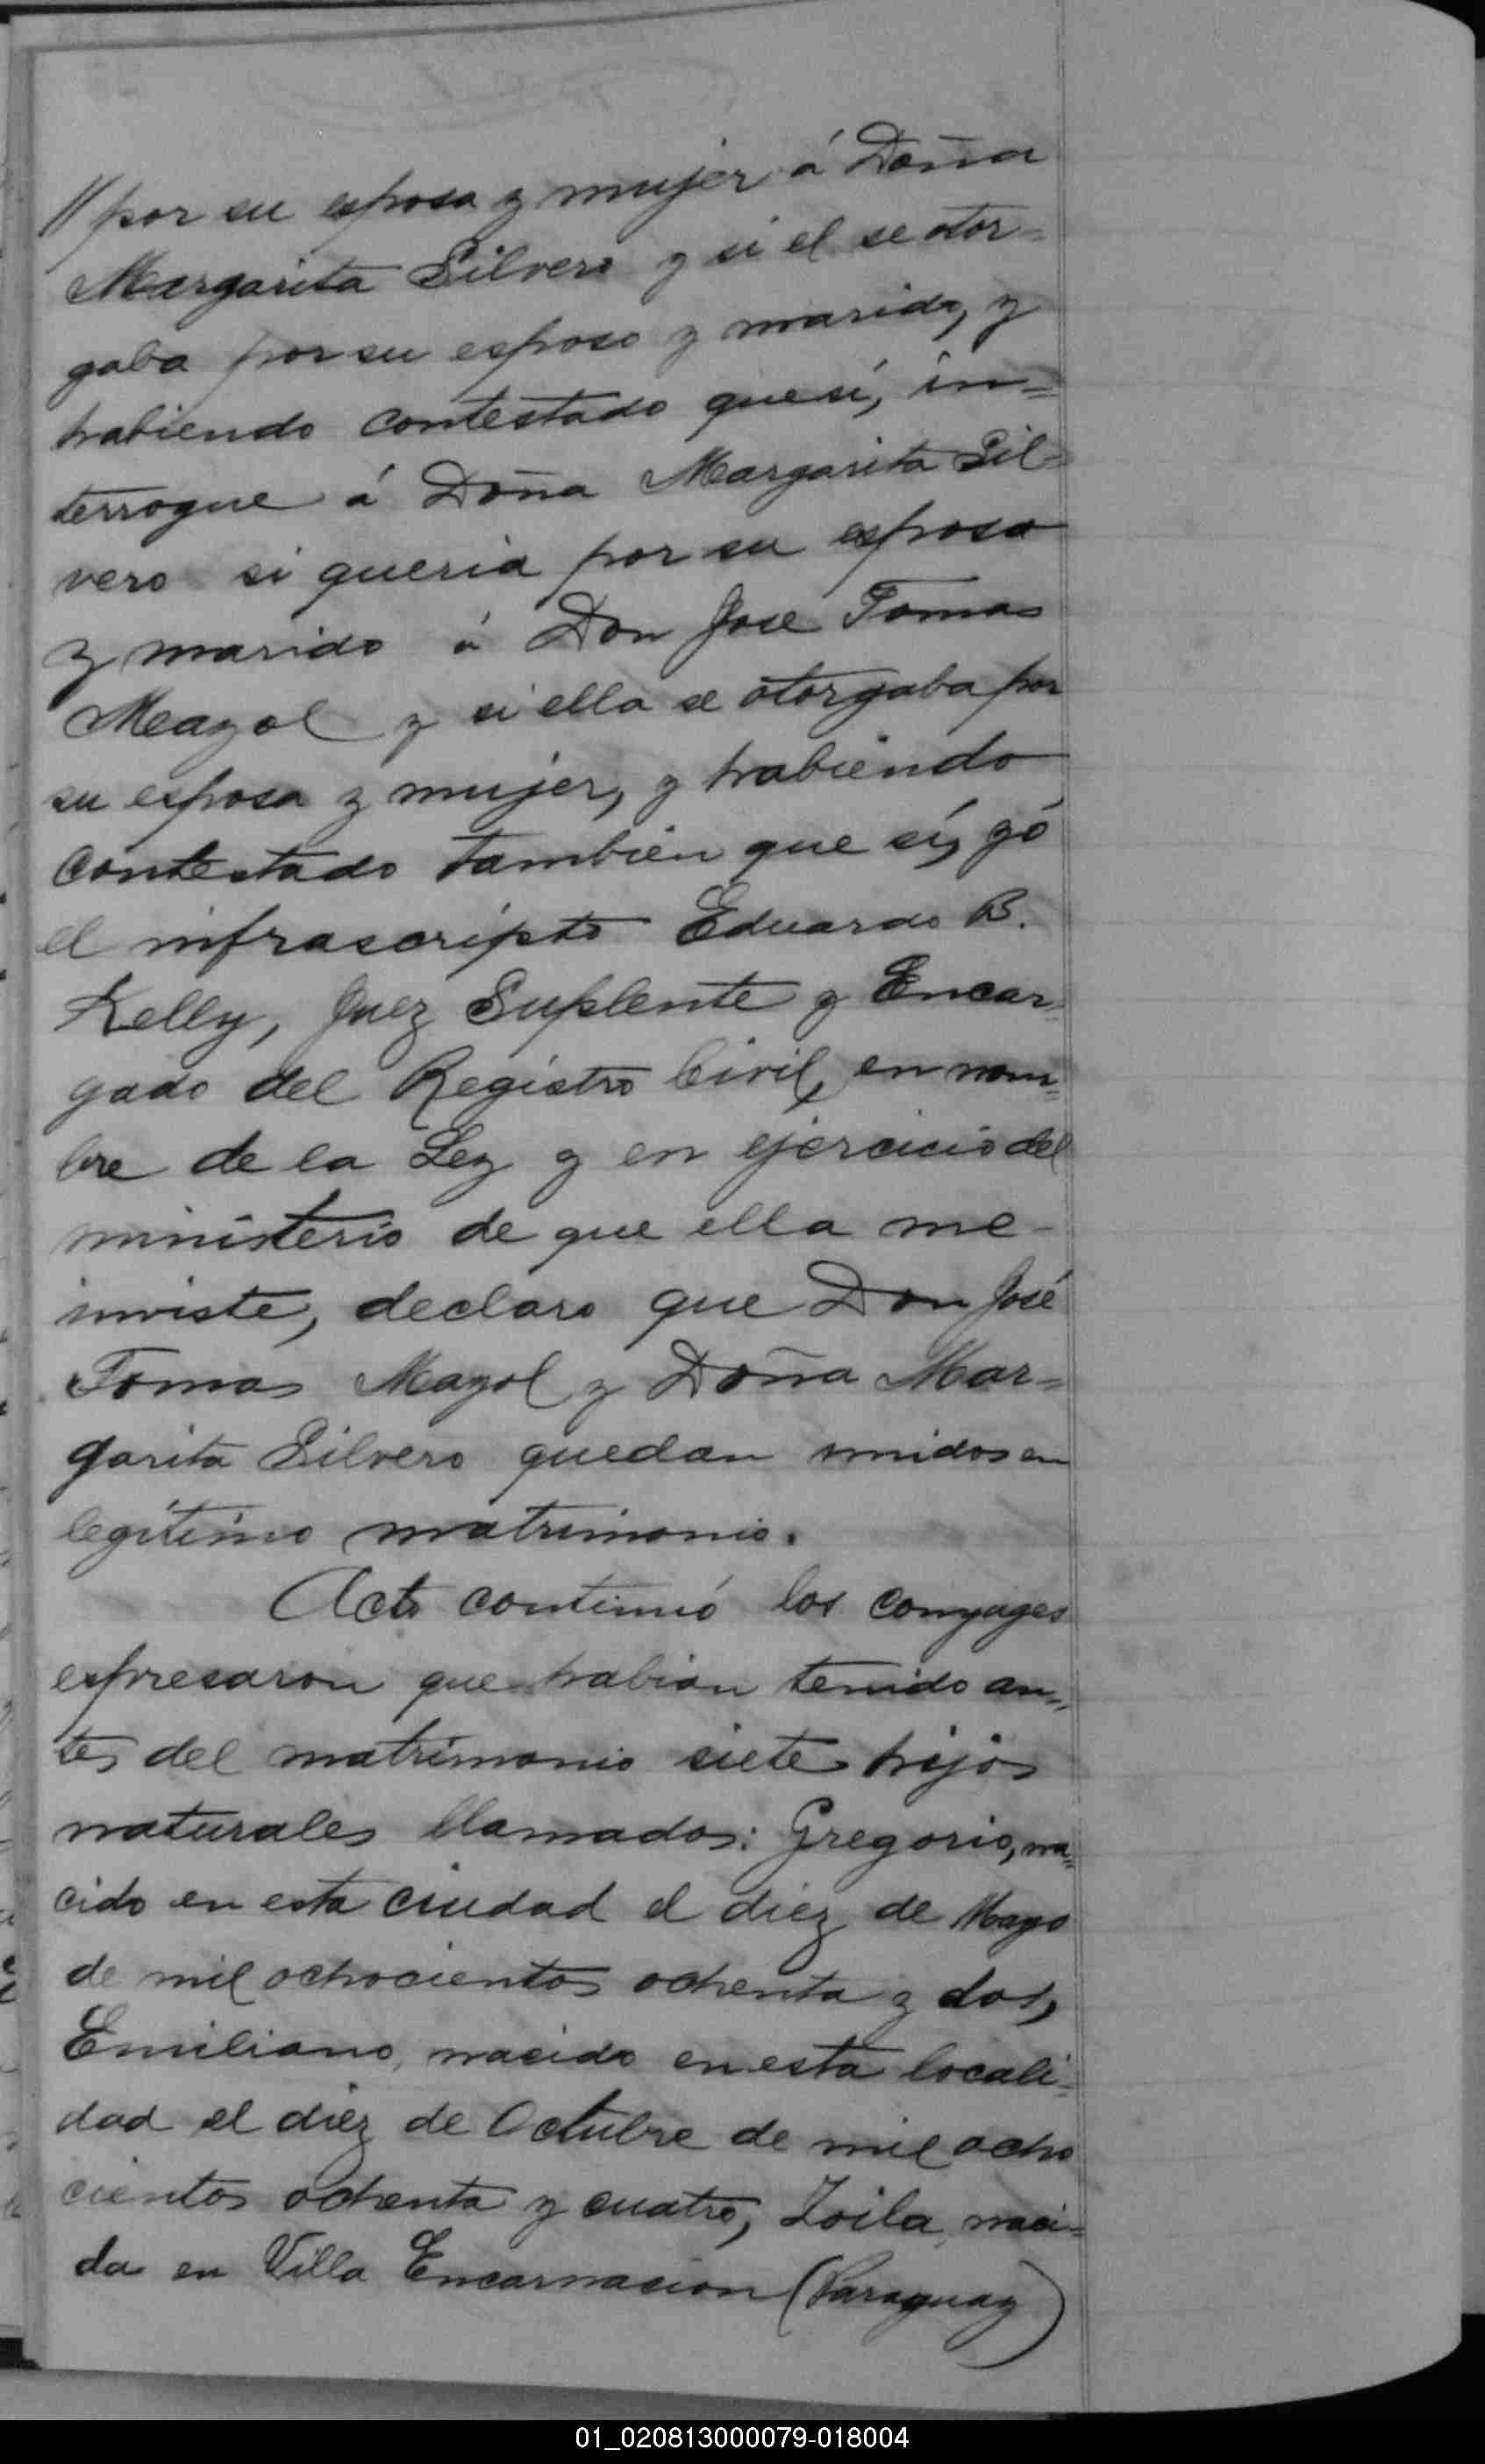 // por su esposa y mujer á Doña
Margarita Silvero y si el se otor=
gaba por su esposo y marido, y
habiendo contestado que sí, in=
terrogue á Doña Margarita Sil=
vero si queria por su esposo
y marido á Don José Tomas
Mayol y si ella se otorgaba por
su esposa y mujer, y habiendo
contestado tambien que sí, yó
el infrascripto Eduardo B.
Kelly, Juez Suplente y Encar=
gado del Registro Civil, en nom=
bre de la Ley y en ejercicio del
ministerio de que ella me
inviste, declaro que Don José
Tomas Mayol y Doña Mar=
garita Silvero quedan unidos en
legítimo matrimonio.
Acto continuó los conyuges
espresaron que habian tenido an=
tes del matrimonio siete hijos
naturales llamados: Gregorio, na=
cido en esta ciudad el diez de Mayo
de mil ochocientos ochenta y dos,
Emiliano, nacido en esta locali=
dad el diez de Octubre de mil ocho
cientos ochenta y cuatro, Zoila, naci=
da en Villa Encarnacion (Paraguay)
01_020813000079-018004